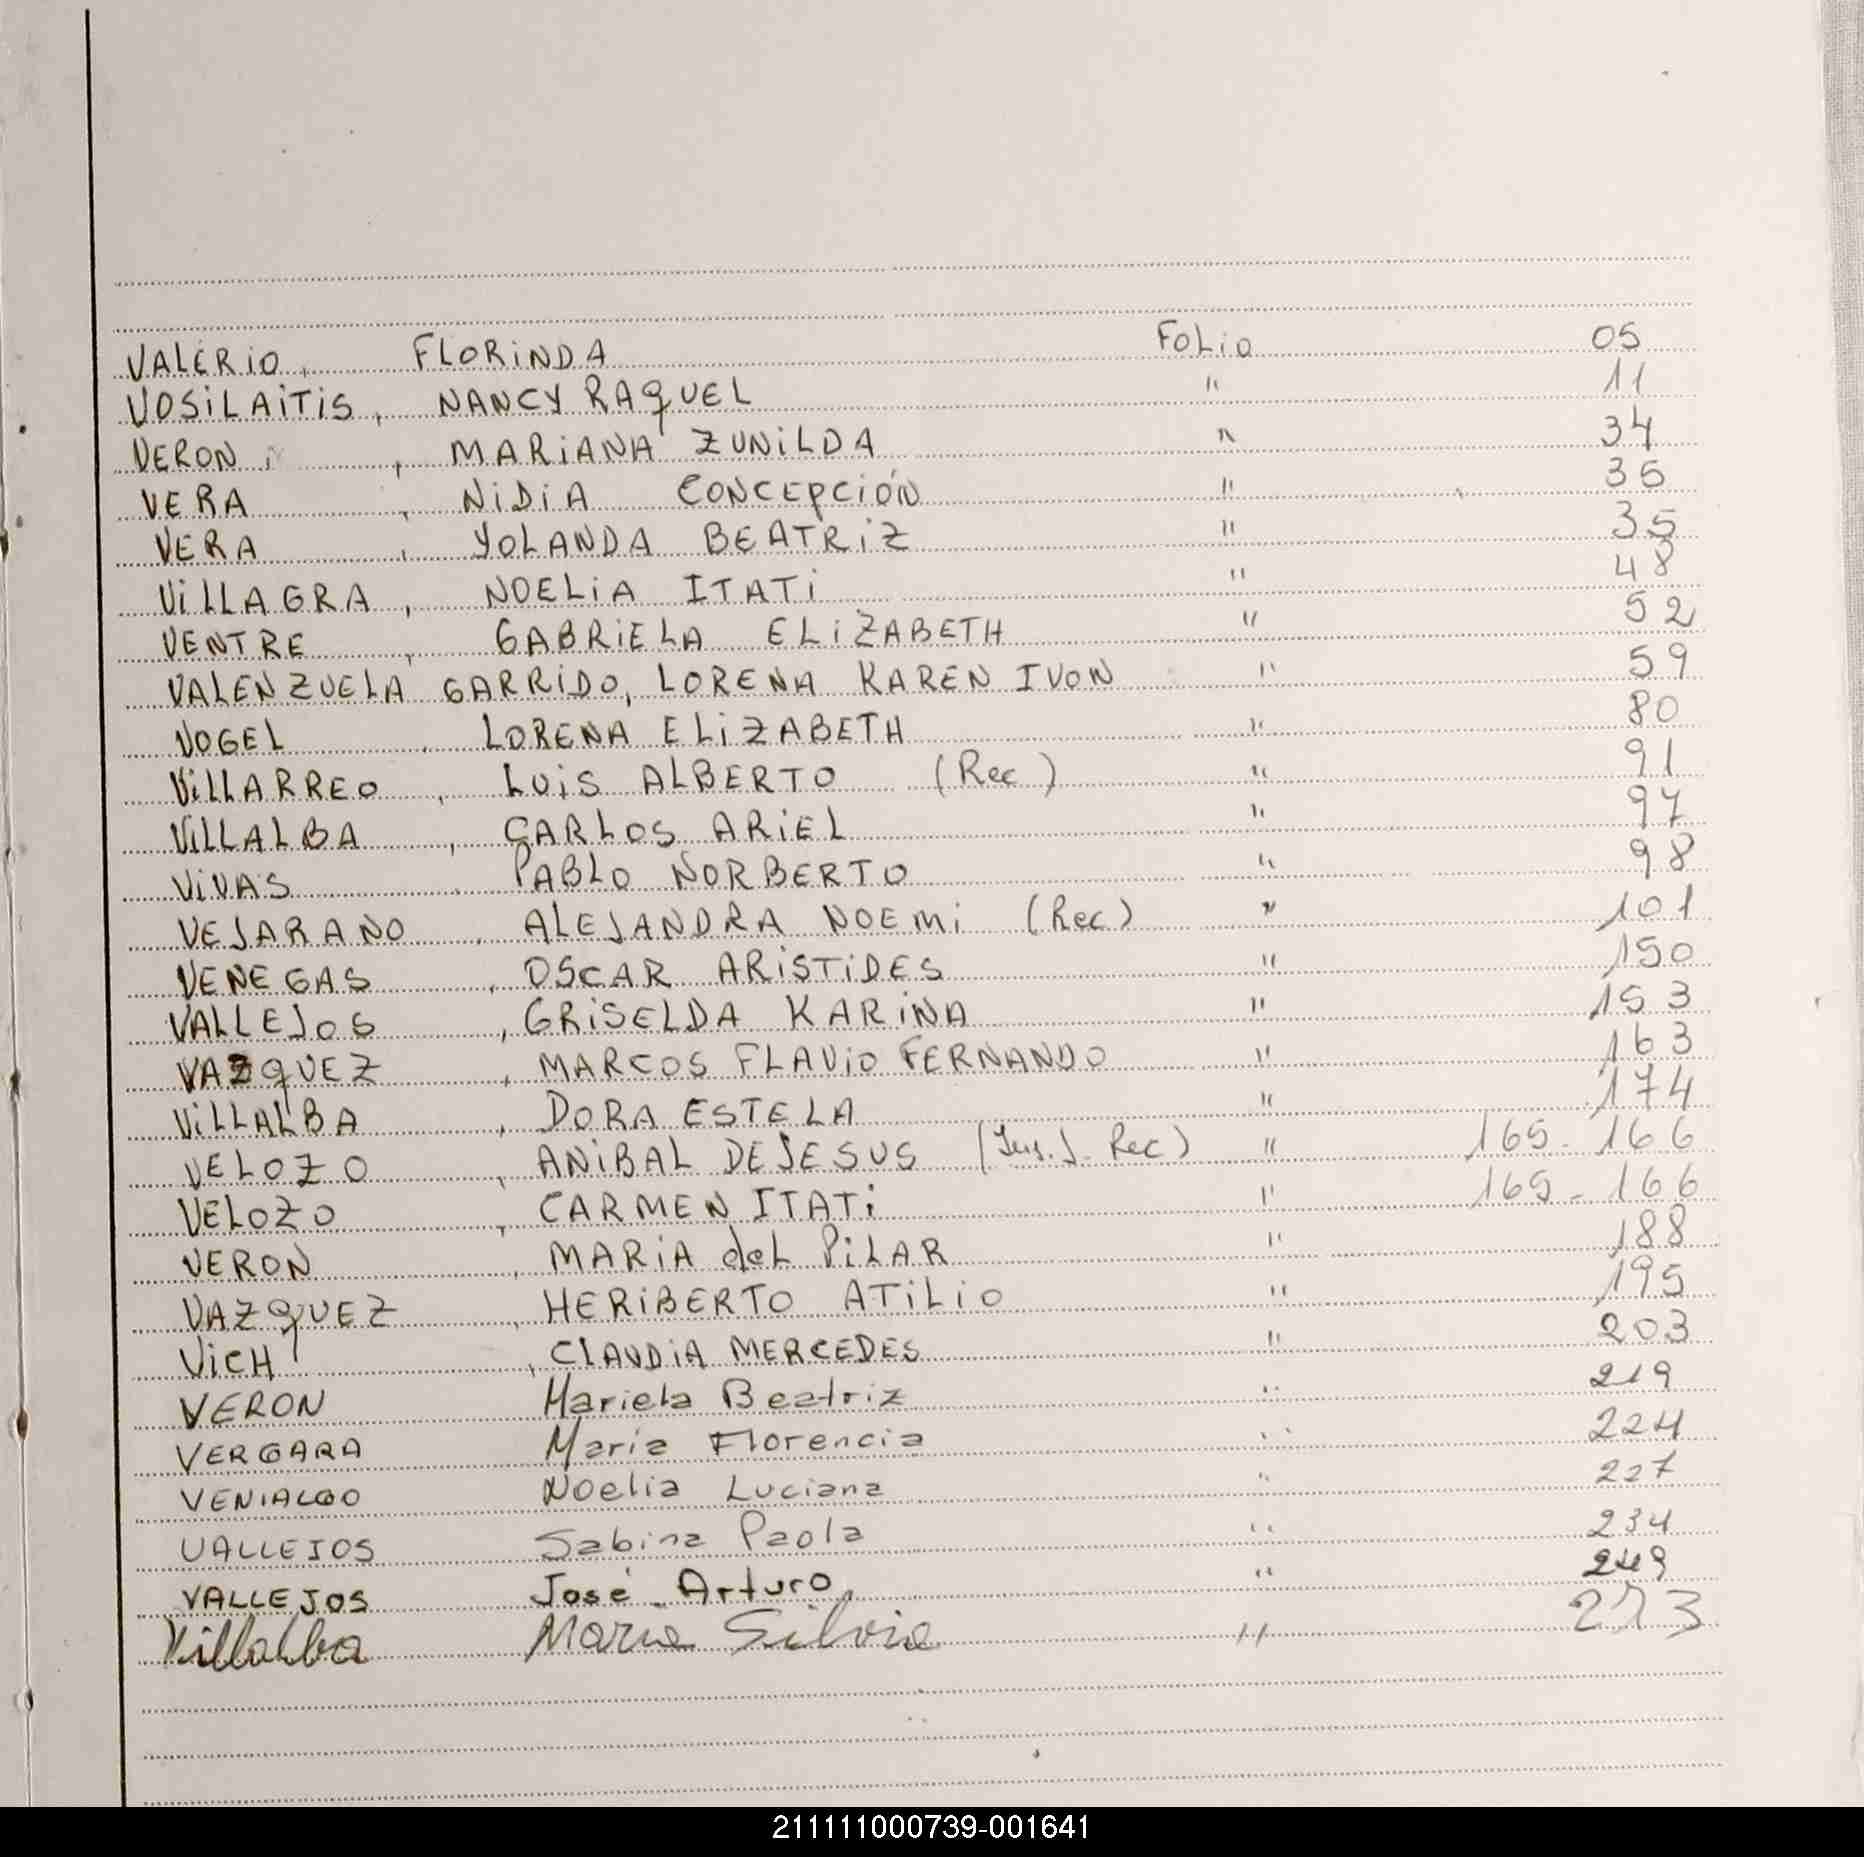 VALERIO, FLORINDA Folio 05
VOSILAITIS, NANCY RAQUEL " 11
VERON, MARIANA ZUNILDA " 34
VERA, NIDIA CONCEPCIÓN " 35
VERA, YOLANDA BEATRIZ " 35
VILLAGRA, NOELIA ITATI " 48
VENTRE, GABRIELA ELIZABETH " 52
VALENZUELA GARRIDO, LORENA KAREN IVON " 59
VOGEL, LORENA ELIZABETH " 80
VILLARREO, LUIS ALBERTO (Rec) " 91
VILLALBA, CARLOS ARIEL " 97
VIVAS, PABLO NORBERTO " 98
VEJARANO, ALEJANDRA NOEMI (Rec) " 101
VENEGAS, OSCAR ARISTIDES " 150
VALLEJOS, GRISELDA KARINA " 153
VAZQUEZ, MARCOS FLAVIO FERNANDO " 163
VILLALBA, DORA ESTELA " 174
VELOZO, ANIBAL DE JESUS Rec) " 165-166
VELOZO, CARMEN ITATI " 165-166
VERON, MARIA del PILAR " 188
VAZQUEZ, HERIBERTO ATILIO " 195
VICH, CLAUDIA MERCEDES " 203
VERON Mariela Beatriz " 219
VERGARA María Florencia " 224
VENIALGO Noelia Luciana " 227
VALLEJOS Sabina Paola " 234
VALLEJOS José Arturo " 249
Villalba Maria Silvia " 273
211111000739-001641